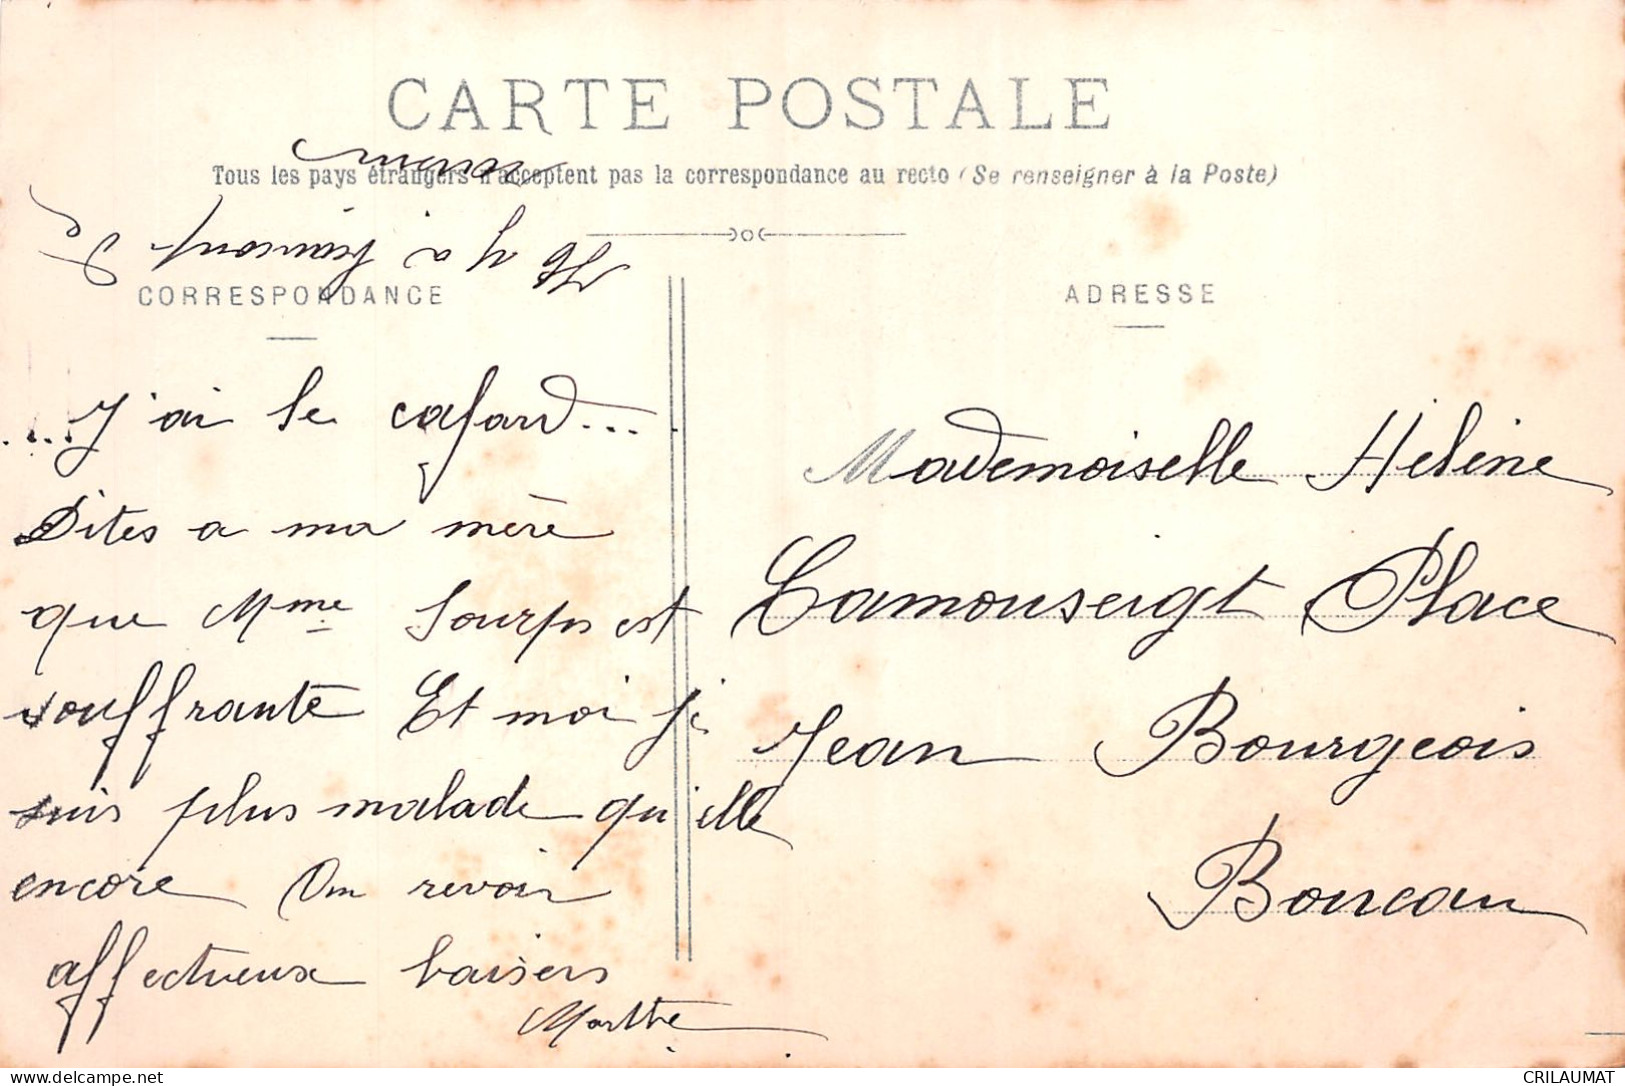 CARTE POSTALE
Tous les pays étrangers n'acceptent pas la correspondance au recto (Se renseigner à la Poste)
CORRESPONDANCE
ADRESSE
...J'ai le cafard...
Dites a ma mère
que Mme Sourps est
souffrante Et moi je
suis plus malade qu'elle
encore Au revoir
affectueux baisers
Marthe
Mademoiselle Hélène
Lamouseigt Place
Jean Bourgeois
Boucau
CRILAUMAT